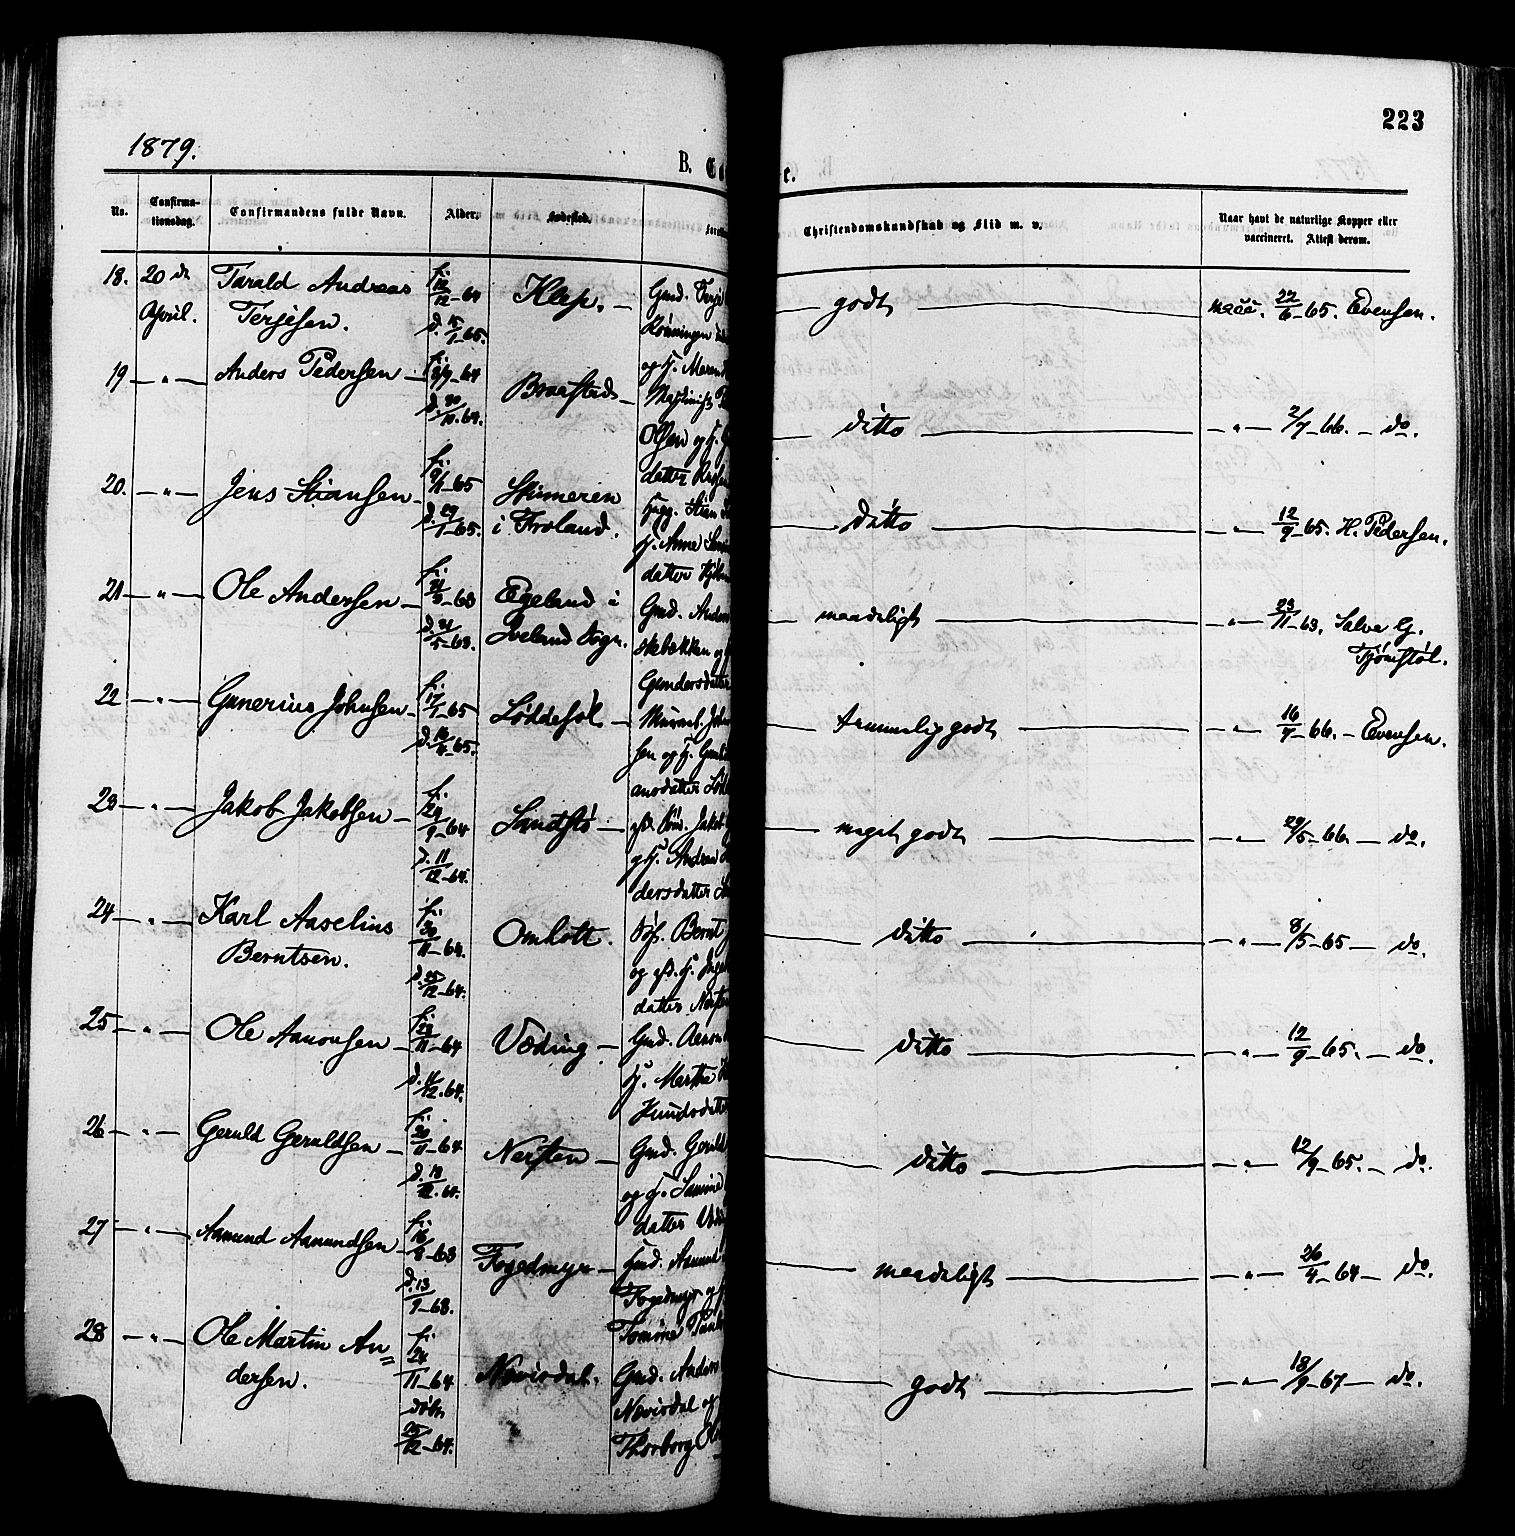 223
1879.
B. Co
e.
No.
Confirma-
tionsdag.
Confirmandens fulde Navn.
Alder.
Fødested.
Foræl
Christendomskundskab og Flid m. v.
Naar havt de naturlige Kopper eller
vaccineret. Attest derom.
18. 20 de
April.
Tarald Andreas
Terjesen.
f.
12/12-64
d. 15/1-65.
Klep. —
Gmd. Terje
Rønningen
og H. Maren
godt
vacc. 22/6-65. Evensen.
19 — " — Anders Pedersen —
f. 2/9-64
d. 30/10-64.
Braastad —
Maskinist
Olsen og H.
datter
ditto
— " — 2/7-66. — do.
20. — " — Jens Stiansen —
f. 9/1-65
d. 29/1-65.
Stimeren
i Froland.
Hugg. Stian
H. Anne
datter
ditto
— " — 12/9-65. H. Pedersen.
21 — " — Ole Andersen —
f. 21/3-63
d. 31/5-63.
Egeland i
Iveland Sogn.
Gmd. Anders
skebækken og
Gundersdatter
maadeligt
— " — 23/11-63. Salve G.
Tjømstøl.
22 — " — Gunerius Johnsen —
f. 17/1-65
d. 16/4-65.
Løddesøl —
Murarb. John
sen og H.
amsdatter
temmelig godt
— " — 16/7-66. — Evensen.
23 — " — Jakob Jakobsen —
f. 29/9-64
d. 11/12-64.
Sandstø —
Jakob
og H. Andrea
dersdatter
meget godt
— " — 29/5-66. — do.
24 — " — Karl Aaselius
Berntsen.
f. 30/11-64.
d. 25/12-64.
Omholt.
Bernt
og
datter
ditto
— " — 8/5-65 — do.
25 — " — Ole Aanonsen —
f. 23/11-64
d. 11/12-64.
Væding —
Gmd. Aanon
H. Marthe
Knudsdatter
ditto
— " — 12/9-65. — do.
26 — " — Geruld Geruldsen —
f. 20/11-64
d. 12/12-64.
Nersten —
Gmd. Geruld
og H.
datter
ditto
— " — 12/9-65. — do.
27 — " — Aamund Aamundsen —
f. 16/8-63
d. 13/9-63.
Fogedmyr —
Gmd. Aamund
Fogedmyr og
Tomine
maadeligt
— " — 26/4-64 — do.
28 — " — Ole Martin An=
dersen.
f. 24/11-64
døbt
25/12-64.
Nævisdal.
Gmd. Anders
Nævisdal og
Thorborg
godt
— " — 18/9-67 — do.